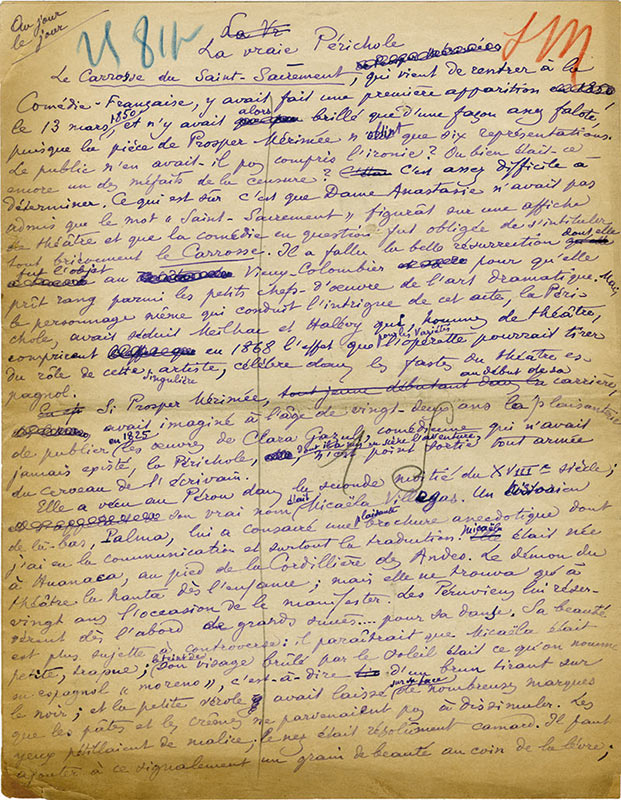 Au jour
le jour
La vraie Périchole
Le Carrosse du Saint-Sacrement, qui vient de rentrer à la
Comédie-Française, y avait fait une première apparition
le 13 mars 1850, et n'y avait alors brillé que d'une façon assez falote,
puisque la pièce de Prosper Mérimée n'obtint que six représentations.
Le public n'en avait-il pas compris l'ironie? Ou bien était-ce
encore un des méfaits de la censure? C'est assez difficile à
déterminer. Ce qui est sûr c'est que Dame Anastasie n'avait pas
admis que le mot "Saint-Sacrement" figurât sur une affiche
de théâtre et que la comédie en question fut obligée de s'intituler
tout brièvement le Carrosse. Il a fallu la belle résurrection dont elle
fut l'objet au Vieux-Colombier pour qu'elle
prît rang parmi les petits chefs-d'œuvre de l'art dramatique. Mais
le personnage même qui conduit l'intrigue de cet acte, la Péri-
chole, avait séduit Meilhac et Halévy qui, hommes de théâtre,
comprirent en 1868 l'effet que l'opérette pourrait tirer pour les Variétés
du rôle de cette singulière artiste, célèbre dans les fastes du théâtre es-
pagnol.
Si Prosper Mérimée, au début de sa carrière,
avait imaginé à l'âge de vingt-deux ans la plaisanterie
de publier en 1825 les œuvres de Clara Gazul, comédienne qui n'avait
jamais existé, la Périchole, n'est point sortie tout armée
du cerveau de l'écrivain.
Elle a vécu au Pérou dans la seconde moitié du XVIIIe siècle;
son vrai nom était Micaëla Villegas. Un
de là-bas, Palma, lui a consacré une plaisante brochure anecdotique dont
j'ai eu la communication et surtout la traduction. Micaëla était née
à Huanaca, au pied de la Cordillière des Andes. Le démon du
théâtre la hanta dès l'enfance; mais elle ne trouva qu'à
vingt ans l'occasion de le manifester. Les Péruviens lui réser-
vèrent dès l'abord de grands succès.... pour sa danse. Sa beauté
est plus sujette à controverse: il paraîtrait que Micaëla était
petite, trapue; son visage brûlé par le soleil était ce qu'on nomme
en espagnol "moreno", c'est-à-dire d'un brun tirant sur
le noir; et la petite vérole y avait laissé sur sa face de nombreuses marques
que les pâtes et les crèmes ne parvenaient pas à dissimuler. Les
yeux pétillaient de malice; le nez était résolument camard. Il faut
ajouter à ce signalement un grain de beauté au coin de la lèvre;